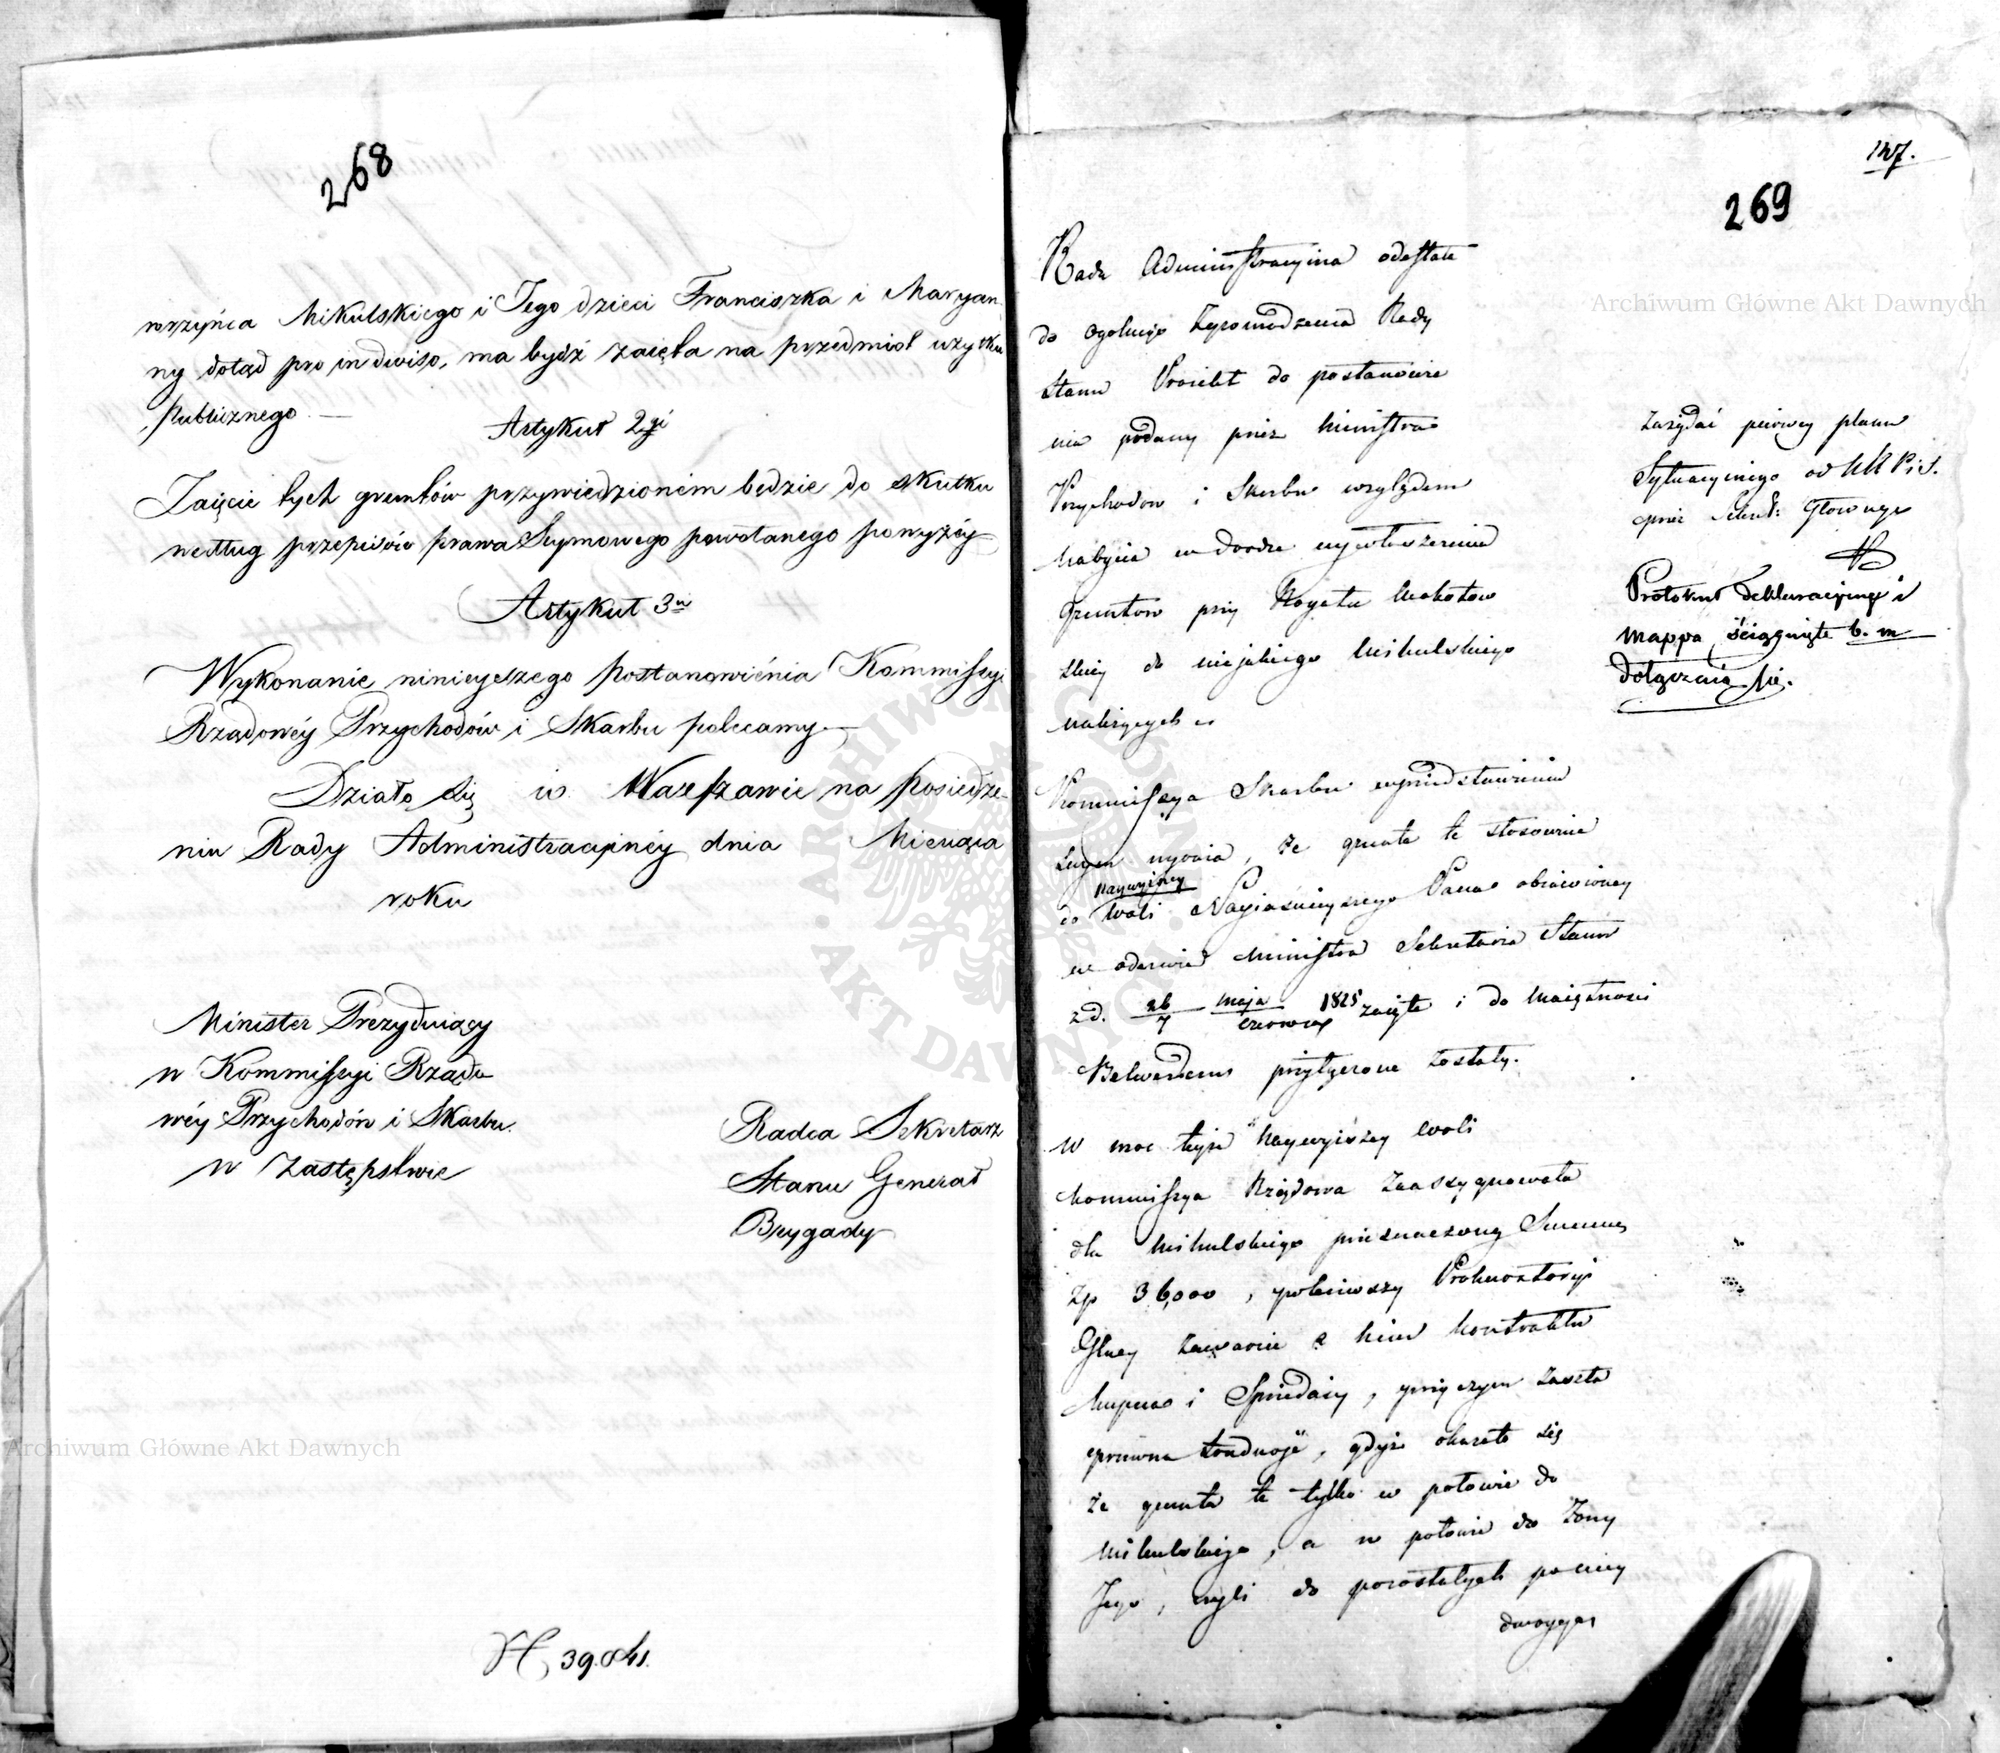 268
wrzyńca Mikulskiego i Jego dzieci Franciszka i Maryan
ny dotąd pro indiviso, ma bydź zaięta na przedmiot użytku
publicznego. —
Artykuł 2gi
Zaięcie tych gruntów przywiedzioném będzie do skutku
według przepisów prawa Seymowego powołanego powyżéy
Artykuł 3ci
Wykonanie ninieyszego postanowiénia Kommissyi
Rządowéy Przychodów i Skarbu polecamy. —
Działo się w Warszawie na posiedze-
niu Rady Administracyinéy dnia Miesiąca
roku
Minister Prezyduiący
w Kommissyi Rządo
wéy Przychodów i Skarbu
w zastępstwie
Radca Sekretarz
Stanu Generał
Brygady
39.041.
147.
269
Rada Administracyina odesłała
do Ogolnego Zgromadzenia Rady
Stanu Proiekt do postanowie
nia podany przez Ministra
Przychodow i Skarbu względem
nabycia w drodze wywłaszczenia
Gruntow przy Rogatce Mokotow
skiey do niejakiego Mikulskiego
należących
Kommissya Skarbu w przedstawieniu
swym wyraża, że grunta te stosownie
do Naywyższey Woli Nayiaśnieyszego Pana obiawioney
w odezwie Ministra Sekretarza Stanu
z d. 26/7 Maja/Czerwca 1825 zaięte i do Maiętności
Belwederu przyłączone zostały.
W moc teyże Naywyższey Woli
Kommissya Rządowa zaassygnowała
dla Mikulskiego przeznaczoną Summę
Zp 36,000, poleciwszy Prokuratoryi
Glney zawarcie z nim Kontraktu
Kupna i Sprzedaży, przyczem zaszła
prawna trudność, gdyż okazało się
że grunta te tylko w połowie do
Mikulskiego, a w połowie do Żony
Jego, czyli do pozostałych po niey
dwoyga
Zażądać pierwey planu
Sytuacyinego od KRPiS.
przez Sekret: Głownego
Protokuł deklaracyiny i
mappa ściągnięte b. m
dołączaią się.
Archiwum Główne Akt Dawnych
Archiwum Główne Akt Dawnych
ARCHIWUM GŁÓWNE AKT DAWNYCH